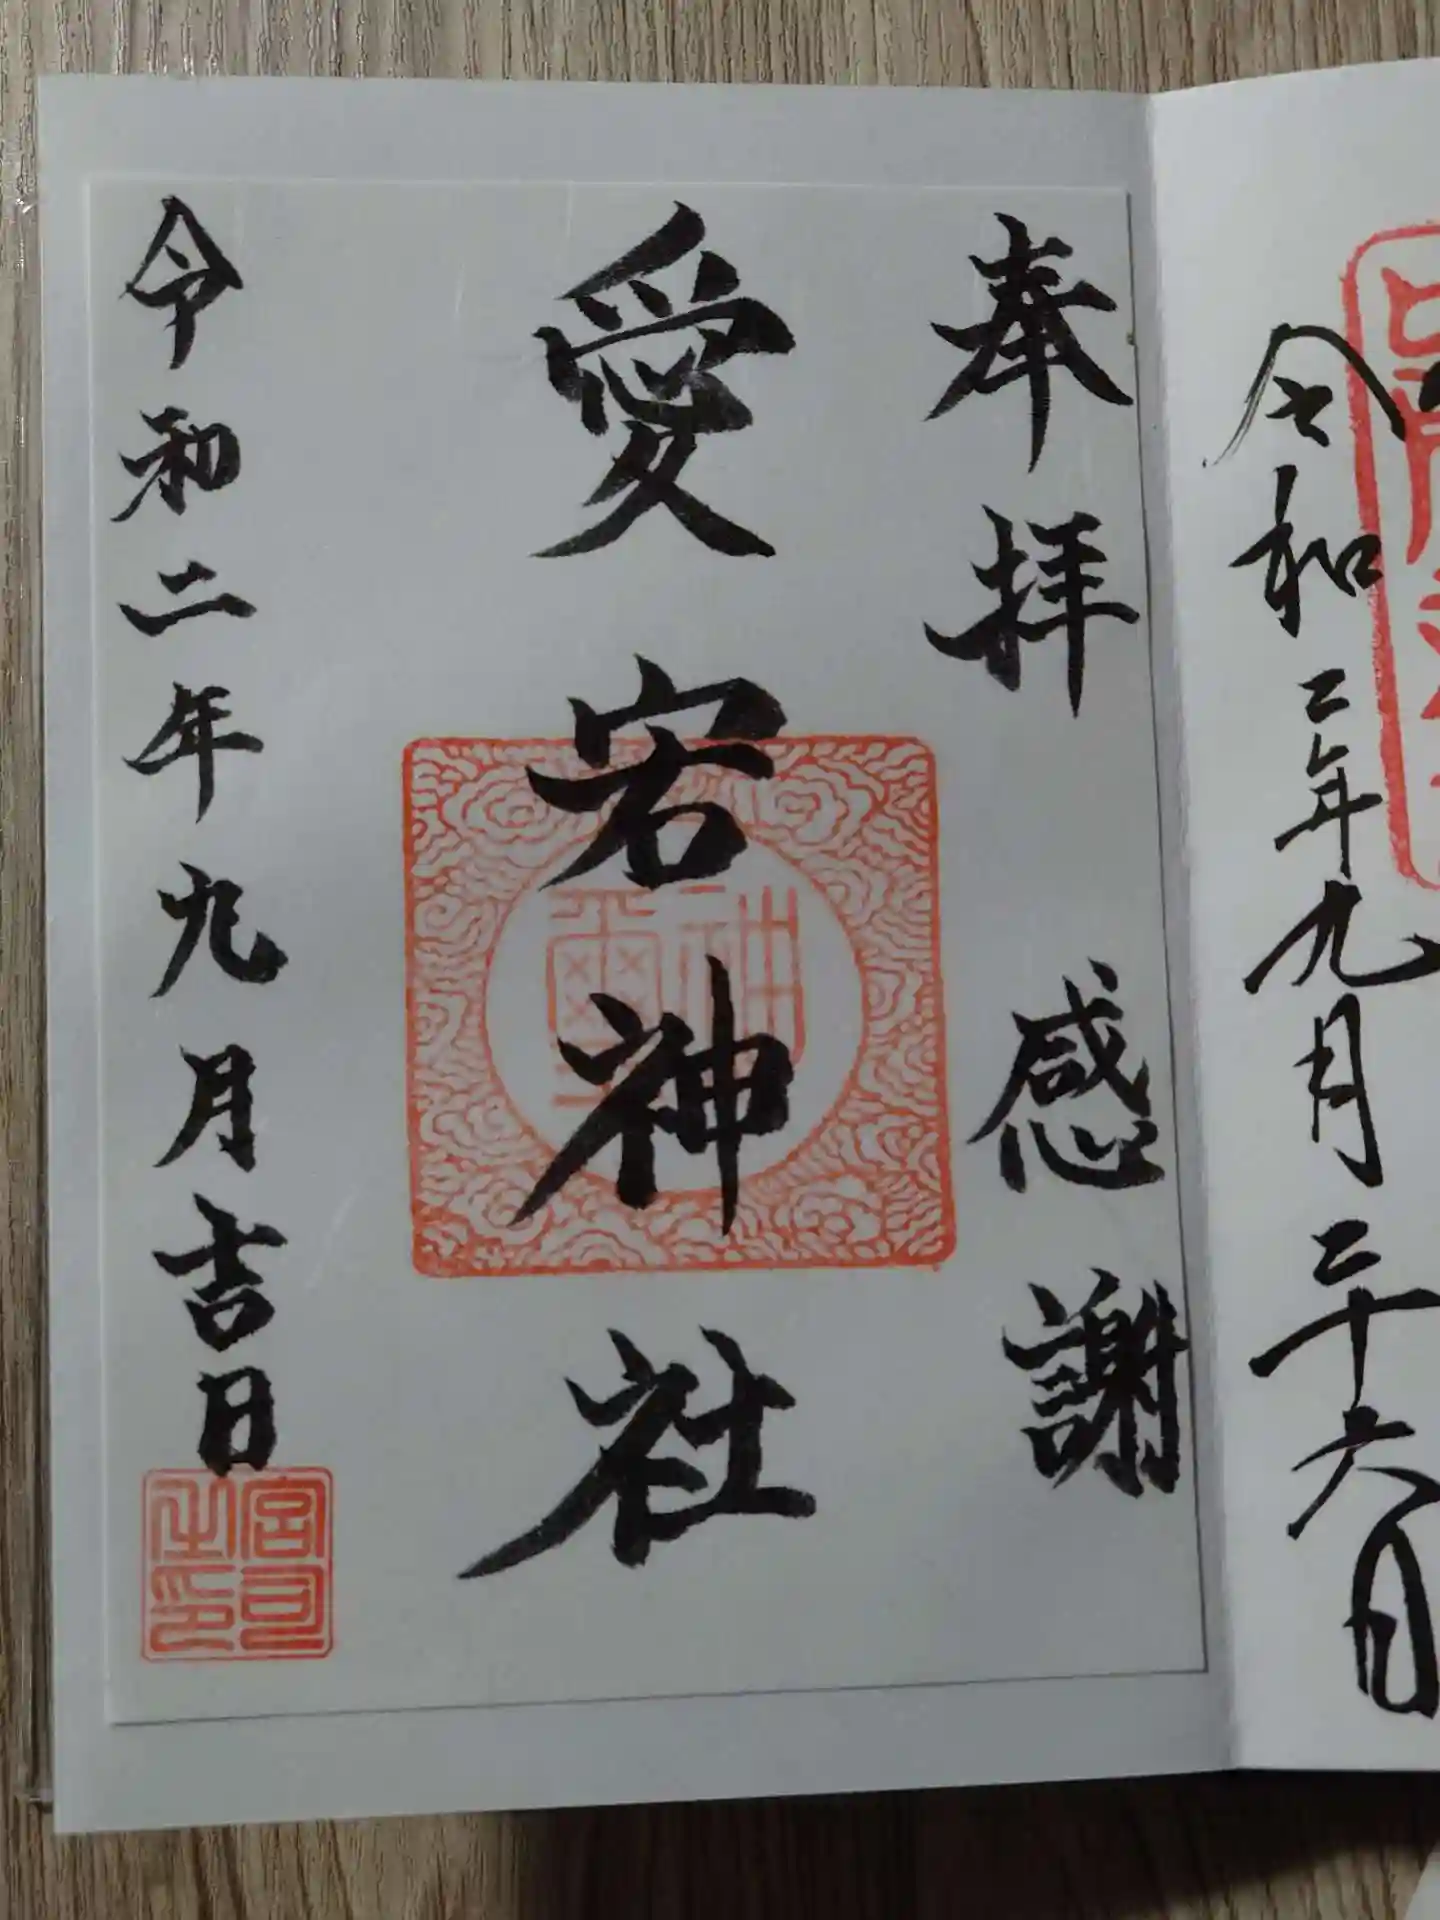 令和二年九月二十六日
奉拝 感謝
愛宕神社
神璽
令和二年九月吉日
宮司之印